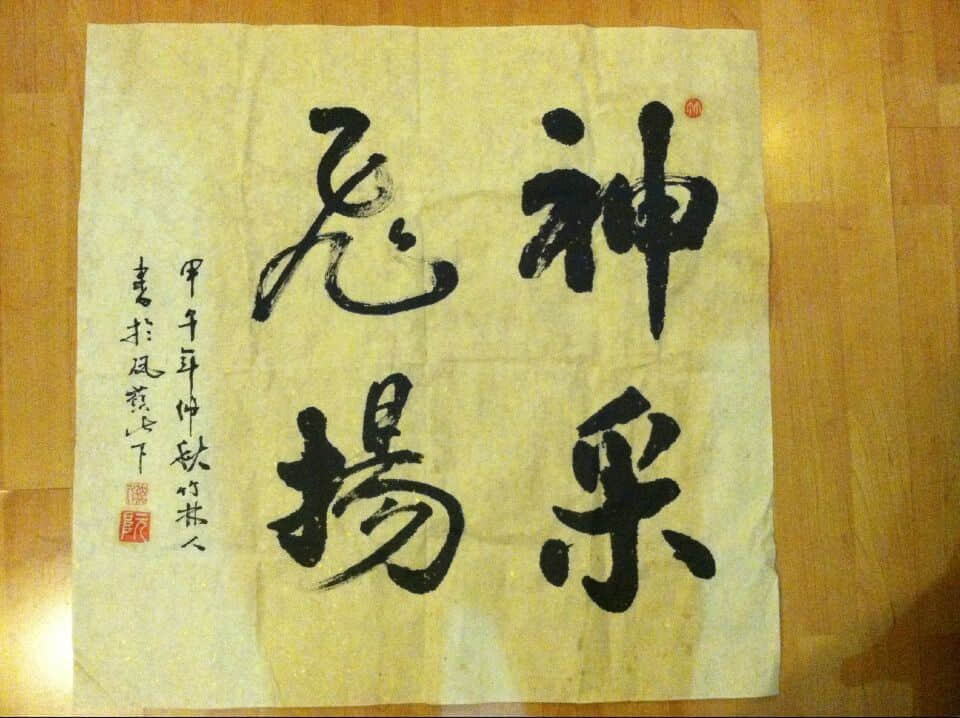 神采
飛揚
甲午年仲秋竹林人
書於鳳凰山下
阮